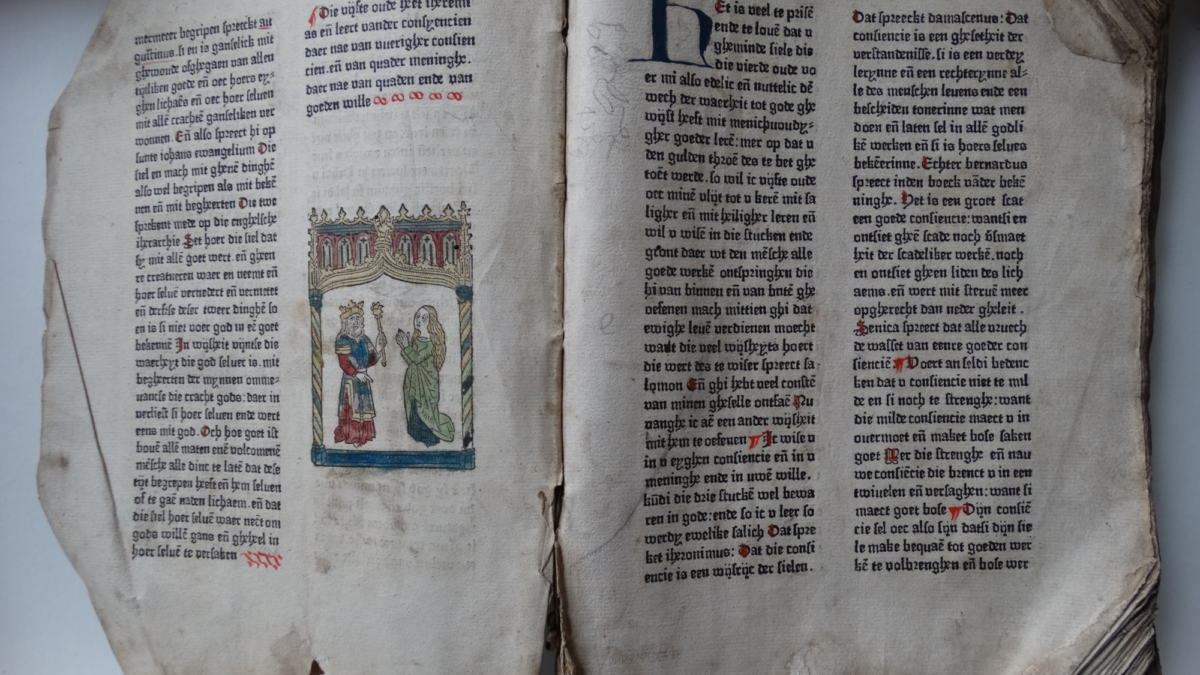 mermeer begripen spreeckt au
gustinus. si en is ganselick mit
ghewoude afghegaen van allen
tijtliken goede eñ oec hoers ey⸗
ghen lichaēs eñ oec hoer seluen
mit allē crachtē ganseliken ver
wonnen. Eñ also spreect hi op
sunte iohans ewangelium Die
siel en mach mit ghenē dinghē
also wel begripen als mit bekē
nen eñ mit begheerten Die twe
sprekent mede op die enghelsche
iherarchie Set hoer die siel dat
sy mit allē goet wert. eñ gheen
re creatueren waer en neemt eñ
hoer seluē vernedert eñ vermetet
eñ derfse deser tweer dinghē so
en is si niet voer god in eē goet
bekennē In wijsheit vijntse die
waerheyt die god seluer is. mit
begheerten der mynnen omme⸗
uanctse die cracht gods: daer in
verliest si hoer seluen ende wert
eens mit god. Och hoe goet ist
bouē allē maten enē volcomenē
mēsche alle dinc te latē dat dese
tijt begrepen heeft eñ hem seluen
of te gaē naden lichaem. eñ dat
die siel hoer seluē waer neēt om
gods willē gans eñ gheheel in
hoer seluē te versaken
Die vijfte oude heet iheremi
as eñ leert vander consyencien
daer nae van vuerigher consien
cien. eñ van quader meninghe.
daer nae van quaden ende van
goeden wille
Het is veel te prisē
ende te louē dat v
gheminde siele die
die vierde oude vo
er mi also edelic eñ nuttelic dē
wech der waerheit tot gode ghe
wijst heeft mit menichuoudy⸗
gher goeder lerē: mer op dat v
den gulden throē des te bet ghe
toēt werde. so wil ic vijfte oude
oec minē vlijt tot v kerē mit sa
ligher eñ mit heiligher leren eñ
wil v wisē in die stucken ende
gront daer wt den mēsche alle
goede werkē ontspringhen die
hi van binnen eñ van butē ghe
oefenen mach mittien ghi dat
ewighe leuē verdienen moecht
want die veel wijsheyts hoert
die wert des te wiser spreect sa⸗
lomon Eñ ghi hebt veel constē
van minen gheselle ontfaē Nu
vanghe ic aē een ander wijsheit
mit hem te oefenen Ic wise v
in v eyghen consiencie eñ in v
meninghe ende in uwē wille.
kūdi die drie stuckē wel bewa
ren in gode: ende so ic v leer so
werdy ewelike salich Dat spre
ket iheronimus: Dat die consi
encie is een wijsrijc der sielen.
Dat spreeckt damascenus: Dat
consiencie is een ghesetheit der
verstandenisse. si is een verdry
leryune eñ een rechterynne al⸗
le des menschen leuens ende een
bescheiden tonerinne wat men
doen eñ laten sel in allē godli
kē werken eñ si is hoers selues
bekēerinne. Echter bernardus
spreect inden boeck vāder bekē
ninghe. Het is een groet scat
een goede consiencie: wantsi en
ontsiet ghē scade noch v̄smaet
heit der scadeliker werkē. noch
en ontsiet gheen liden des lich
aems. eñ wert mit steruē meer
opgherecht dan neder gheleit.
Senica spreect dat alle vruech
de wasset van eenre goeder con
siencie Voert an seldi bedenc
ken dat v consiencie niet te mil
de en si noch te strenghe: want
die milde consiencie maect v in
ouermoet eñ maket bose saken
goet Mer die strenghe eñ nau
we consiēcie die brenct v in een
twiuelen eñ versaghen: want si
maect goet bose Dijn consiē
cie sel oec also sijn datsi dijn sie
le make bequaē tot goeden wer
kē te volbrenghen eñ bose wer